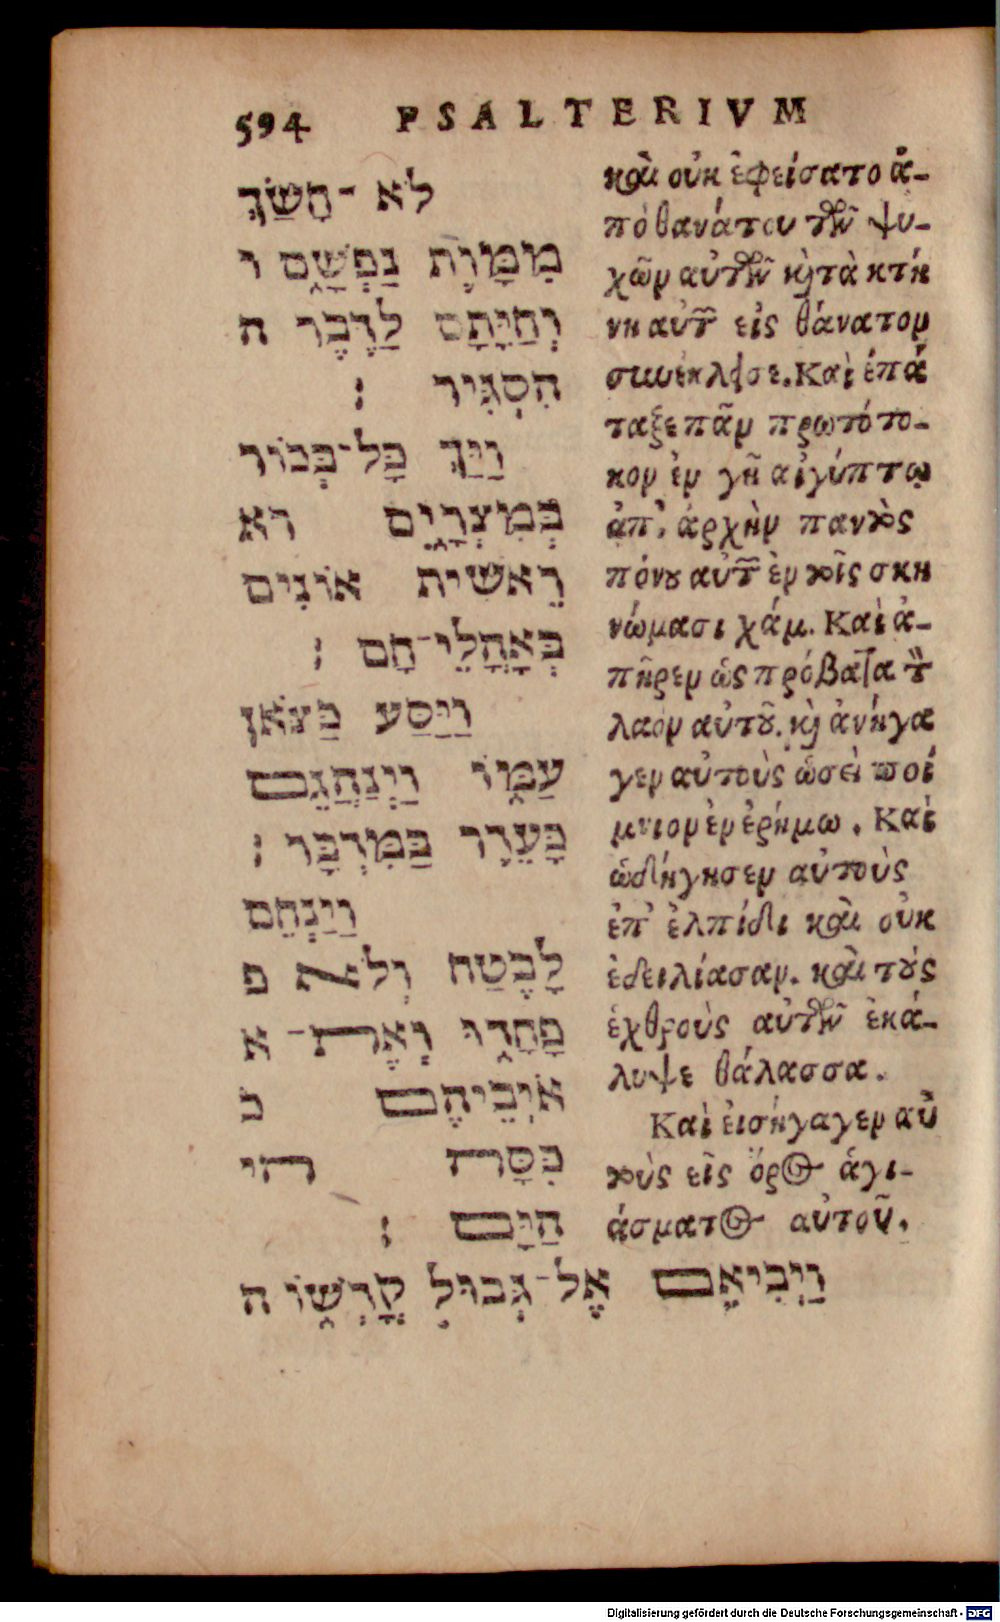 594 PSALTERIVM
לֹא־חָשַׂךְ
מִמָּוֶת נַפְשָׁם ו
וְחַיָּתָם לַדֶּבֶר ה
הִסְגִּיר ׃
וַיַּךְ כָּל־בְּכוֹר
בְּמִצְרָיִם רא
רֵאשִׁית אוֹנִים
בְּאָהֳלֵי־חָם ׃
וַיַּסַּע כַּצֹּאן
עַמּוֹ וַיְנַהֲגֵם
כָּעֵדֶר בַּמִּדְבָּר ׃
וַיַּנְחֵם
לָבֶטַח וְלֹא פ
פָחָדוּ וְאֶת־ א
אֹוְיבֵיהֶם כ
כִּסָּה הי
הַיָּם ׃
וַיְבִיאֵם אֶל־גְּבוּל קָדְשׁוֹ ה
καὶ οὐκ ἐφείσατο ἀ-
πὸ θανάτου τῶν ψυ-
χῶν αὐτῶν καὶ τὰ κτή
νη αὐτῶν εἰς θάνατον
συνέκλεισε. Καὶ ἐπά
ταξε πᾶν πρωτότο-
κον ἐν γῇ αἰγύπτῳ
ἀπ' ἀρχὴν παντὸς
πόνου αὐτῶν ἐν τοῖς σκη
νώμασι χάμ. Καὶ ἀ-
πῆρεν ὡς πρόβατα τὸν
λαὸν αὐτοῦ. καὶ ἀνήγα
γεν αὐτοὺς ὡσεὶ ποί
μνιον ἐν ἐρήμω. Καὶ
ὡδήγησεν αὐτοὺς
ἐπ' ἐλπίδι καὶ οὐκ
ἐδειλίασαν. καὶ τοὺς
ἐχθροὺς αὐτῶν ἐκά-
λυψε θάλασσα.
Καὶ εἰσήγαγεν αὐ
τοὺς εἰς ὄρος ἁγι-
άσματος αὐτοῦ.
Digitalisierung gefördert durch die Deutsche Forschungsgemeinschaft - DFG